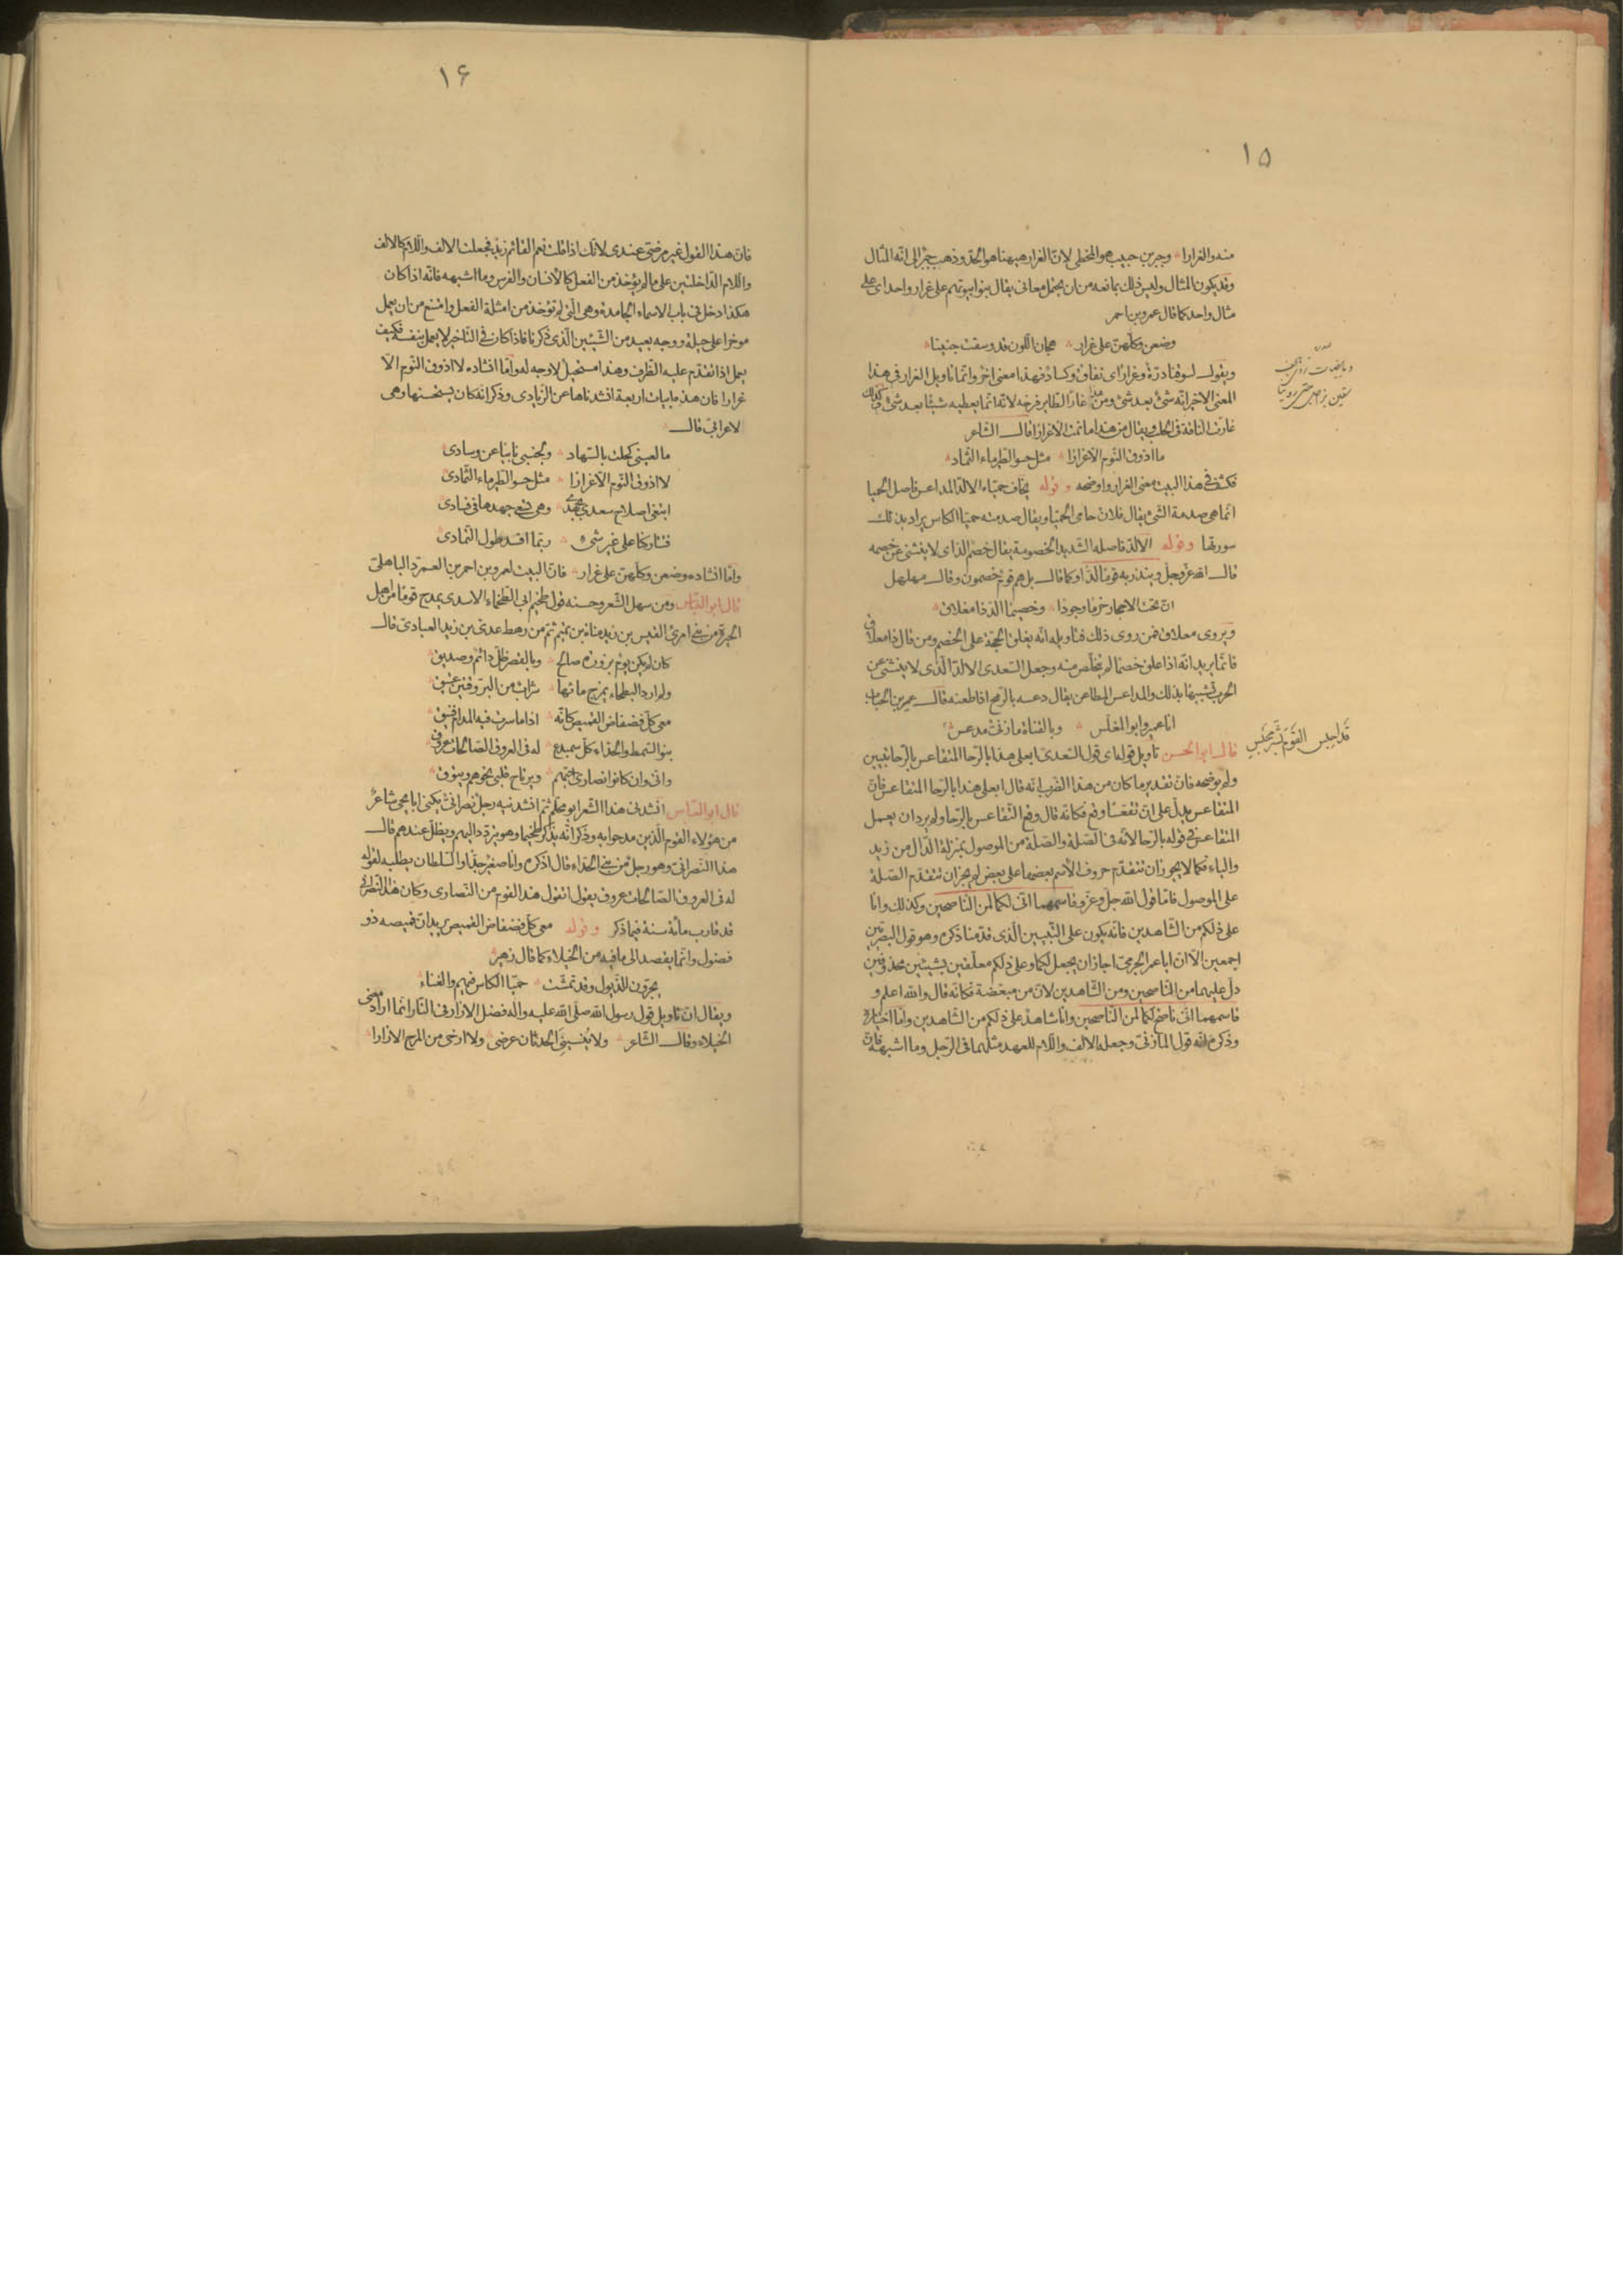 ١٥
منه والغرارا وجبر بن حبيب هو المخطئ لانّ الغرار هيهنا هو الحدّ وذهب جبرٌ الى انّه المثال
وقد يكون المثال وليس ذلك بمانعه من ان يحتمل معانى يقال بنوا بيوتهم على غرار واحد اى على
مثال واحد كما قال عمرو بن احمر
وضعن وكلّهنّ على غرار هجان اللّون قد وسقت جنينا
ويقول لسوقنا درّة وغرار اى نفاق وكساد فهذا معنى اخر وانّما تاويل الغرار فى هذا
المعنى الاخير انّه شئ بعد شئ ومن هذا غارّ الطّاير فرخه لانّه انّما يعطيه شيئا بعد شئ وكذلك
غارّت النّاقة فى الحلب ويقال من هذا ما نمت الّا غرارا قال الشّاعر
ما اذوق النّوم الّا غرارا مثل حسو الطّير ماء الثّماد
فكشف فى هذا البيت معنى الغرار واوضحه وقوله يخاف حميّاء الالدّ المداعس فاصل الحميّا
انّما هى صدمة الشّئ يقال فلان حامى الحميّا ويقال صدمته حميّا الكاس يراد بذلك
سورتها وقوله الالدّ فاصله الشّديد الخصومة يقال خصم الدّ اى لا ينثنى عن خصمه
قال الله عزّ وجلّ وينذر به قومًا لدًّا وكما قال بل هم قومٌ خصمون وقال مهلهل
انّ تحت الاحجار حزما وجودا وخصيما الدّ ذا مغلاق
ويروى معلاق فمن روى ذلك فتاويله انّه يغلق الحجّة على الخصم ومن قال ذا معلاق
فانّما يريد انّه اذا علق خصما لم يتخلّص منه وجعل السّعدى الالدّ الّذى لا ينثنى عن
الحرب تشبيها بذلك والمداعس المطاعن يقال دعسه بالرّمح اذا طعنه قال عمير بن الحباب
انا عمير وابو المغلّس وبالقناة مازنىّ مدعس
قال ابو الحسن تاويل قوله اى قول السّعدى ابعلى هذا بالرّحا المتقاعس بالرّحا تبيين
ولم يوضحه فانّ تقدير ما كان من هذا الضّرب انّه قال ابعلى هذا بالرّحا المتقاعس فانّ
المتقاعس يدلّ على انّ تقعّسا وقع فكانّه قال وقع التّقاعس بالرّحا ولم يرد ان يعمل
المتقاعس فى قوله بالرّحا لانّه فى الصّلة والصّلة من الموصول بمنزلة الدّال من زيد
والياء فكما لا يجوز ان تتقدّم حروف الاسم بعضها على بعض لم يجز ان تتقدّم الصّلة
على الموصول فامّا قول الله جلّ وعزّ وقاسمهما انّى لكما لمن النّاصحين وكذلك وانا
على ذلكم من الشّاهدين فانّه يكون على التّبيين الّذى قدّمنا ذكره وهو قول البصريّين
اجمعين الّا انّ ابا عمر الجرمىّ اجاز ان يجعل لكما وعلى ذلكم معلّقين بشيئين محذوفين
دلّ عليهما من النّاصحين ومن الشّاهدين لانّ من مبعّضة فكانّه قال والله اعلم و
قاسمهما انّى ناصح لكما لمن النّاصحين وانا شاهد على ذلكم من الشّاهدين وامّا اختياره
وذكره انّه قول المازنىّ وجعله الالف واللّام للعهد مثلهما فى الرّجل وما اشبهه فانّ
قد اجلس القوم شر مجلس
١۶
فانّ هذا القول غير مرضىّ عندى لانّك اذا قلت نعم القائم زيد فجعلت الالف واللّام كالالف
واللّام الدّاخلتين على ما لم يؤخذ من الفعل كالانسان والفرس وما اشبهه فانّه اذا كان
هكذا دخل فى باب الاسماء الجامدة وهى الّتى لم تؤخذ من امثلة الفعل وامتنع من ان يعمل
موخرا على حيلة ووجه بعيد من التّبيين الّذى ذكرنا فاذا كان فى التّاخير لا يعمل بنفسه فكيف
يعمل اذا تقدّم عليه الظّرف وهذا مستحيلٌ لا وجه له وامّا انشاده لا اذوق النّوم الّا
غرارا فانّ هذه ابيات اربعة انشدناها عن الزّيادى وذكر انّه كان يستحسنها وهى
لاعرابىّ قال
ما لعينى كحلت بالسّهاد ولجنبى نابيا عن وسادى
لا اذوق النّوم الّا غرارا مثل حسو الطّير ماء الثّمادى
ابتغى اصلاح سعدى بجهدى وهى تسعى جهدها فى فسادى
فتتاركنا على غير شئ ربّما افسد طول التّمادى
وامّا انشاده وضعن وكلّهنّ على غرار فانّ البيت لعمرو بن احمر بن العمرّد الباهلىّ
قال ابو العبّاس ومن سهل الشّعر وحسنه قول طخيم ابى الطّخماء الاسدى يمدح قومًا من اهل
الحيرة من بنى امرئ القيس بن زيد مناة بن تميم ثمّ من رهط عدىّ بن زيد العبادىّ قال
كان لم يكن يوم بزورة صالح وبالقصر ظلّ دائم وصديق
ولم ارد البطحاء يمزج ماءها شراب من البرّوقتين عتيق
معى كلّ فضفاض القميص كانّه اذا ما سرت فيه المدام فنيق
بنو السّمط والحذاء كلّ سميدع له فى العروق الصّالحات عروق
وانّى وان كانوا نصارى احبّهم ويرتاح قلبى نحوهم ويتوق
قال ابو العبّاس انشدنى هذا الشّعر ابو محلّم ثمّ انشدنيه رجل نصرانىّ يكنى ابا يحيى شاعرٌ
من هؤلاء القوم الّذين مدحوا به وذكر انّه يذكر طخيما وهو يتردّد اليهم ويظلّ عندهم قال
هذا النّصرانىّ وهو رجل من بنى الحذاء قال اذكره وانا صغير جدًّا والسّلطان يطلبه لقوله
له فى العروق الصّالحات عروق يقول اتقول هذا لقوم من النّصارى وكان هذا النّصرانى
قد قارب مائة سنة فيما ذكر وقوله معى كلّ فضفاض القميص يريد انّ قميصه ذو
فضول وانّما يقصد الى ما فيه من الخيلاء كما قال زهير
يجرّون الذّيول وقد تمشّت حميّا الكاس فيهم والغناء
ويقال انّ تاويل قول رسول الله صلّى الله عليه واله فضل الازار فى النّار انّما اراد معنى
الخيلاء وقال الشّاعر ولا ينسينى الحدثان عرضى ولا ارخى من المرح الازارا